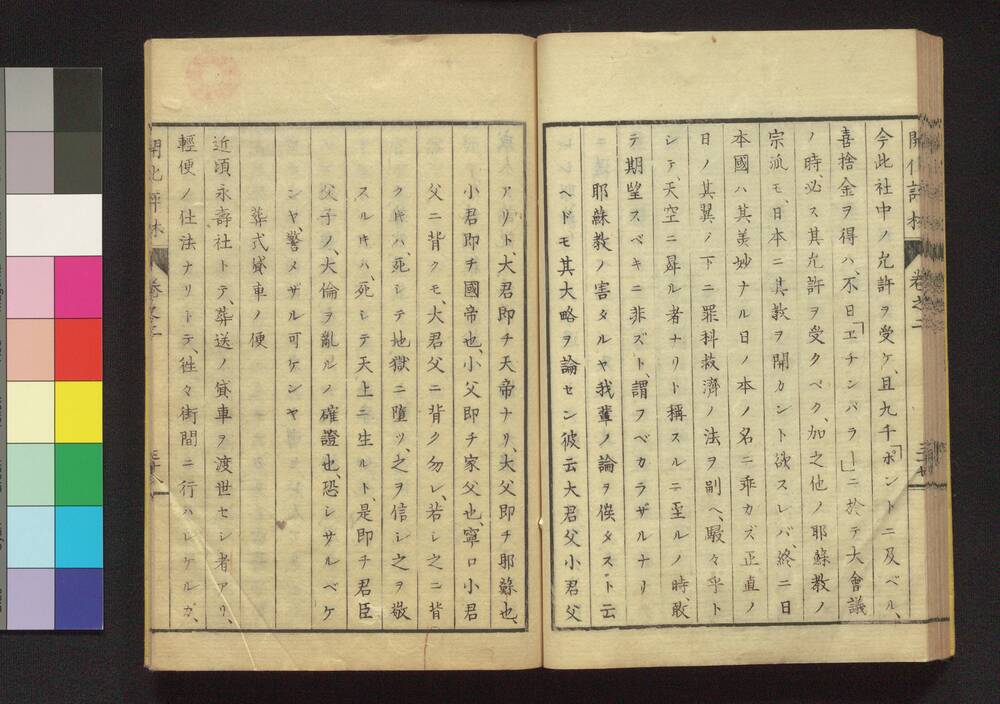 開化評林　卷之二
今此社中ノ允許ヲ受ケ、且九千「ポントニ及ベル、
喜捨金ヲ得ハ、不日「エチンバラー」ニ於テ大會議
ノ時、必ス其允許ヲ受クベク、加之他ノ耶蘇教ノ
宗派モ、日本ニ其教ヲ開カント欲スレバ、終ニ日
本國ハ其美妙ナル日ノ本ノ名ニ乖カズ正直ノ
日ノ其翼ノ下ニ罪科救濟ノ法ヲ剏ヘ、駸々乎ト
シテ、天空ニ昇ル者ナリト稱スルニ至ルノ時、敢
テ期望スベキニ非ズト、謂フベカラザルナリ
耶蘇教ノ害タルヤ我輩ノ論ヲ俟タズト云
ヘドモ其大略ヲ論セン彼云大君父小君父
アリト、大君即チ天帝ナリ、大父即チ耶蘇也、
小君即チ國帝也、小父即チ家父也、寧ロ小君
父ニ背クモ、大君父ニ背ク勿レ、若シ之ニ背
クキハ、死シテ地獄ニ墮ツ、之ヲ信シ之ヲ敬
スルキハ、死シテ天上ニ生ルト、是即チ君臣
父子ノ、大倫ヲ亂ルノ確證也、恐レサルベケ
ンヤ、警メザル可ケンヤ
葬式貸車ノ便
近頃永壽社トテ、葬送ノ貸車ヲ渡世セシ者アリ、
輕便ノ仕法ナリトテ、徃々街間ニ行ハレケルガ、
開化評林　卷之二